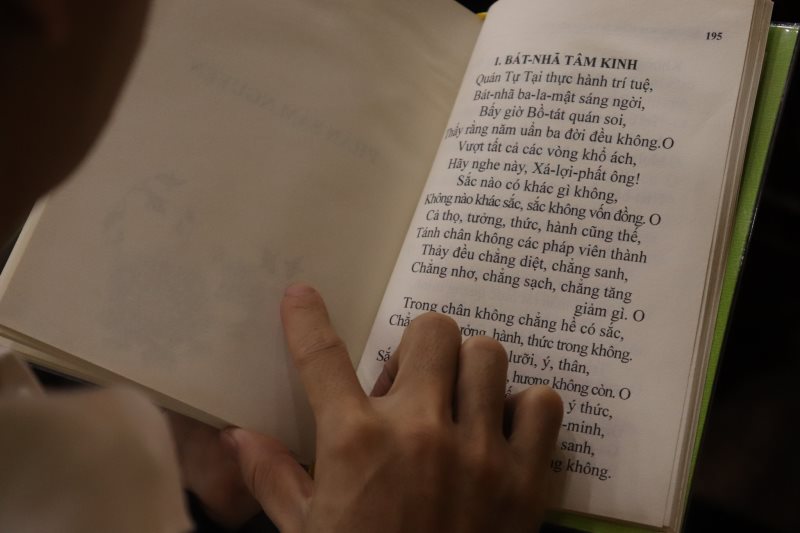 195
1. BÁT-NHÃ TÂM KINH
Quán Tự Tại thực hành trí tuệ,
Bát-nhã ba-la-mật sáng ngời,
Bấy giờ Bồ-tát quán soi,
Thấy rằng năm uẩn ba đời đều không.O
Vượt tất cả các vòng khổ ách,
Hãy nghe này, Xá-lợi-phất ông!
Sắc nào có khác gì không,
Không nào khác sắc, sắc không vốn đồng. O
Cả thọ, tưởng, thức, hành cũng thế,
Tánh chân không các pháp viên thành
Thảy đều chẳng diệt, chẳng sanh,
Chẳng nhơ, chẳng sạch, chẳng tăng
giảm gì. O
Trong chân không chẳng hề có sắc,
hành, thức trong không.
lưỡi, ý, thân,
hương không còn. O
ý thức,
sanh,
không.